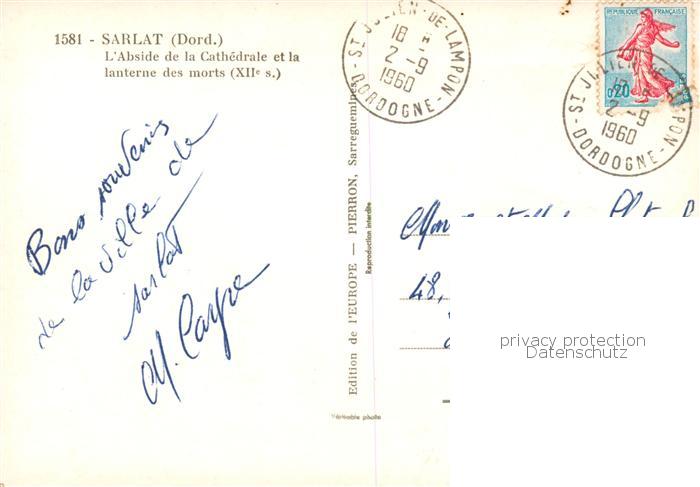 1581 - SARLAT (Dord.)
L'Abside de la Cathédrale et la
lanterne des morts (XIIe s.)
ST JULIEN-DE-LAMPON
18
2-9
1960
DORDOGNE
REPUBLIQUE FRANÇAISE
0,20
ST JULIEN-DE-LAMPON
18
2-9
1960
DORDOGNE
Bons souvenirs
de la ville de
Sarlat
Edition de l'EUROPE — PIERRON, Sarreguemines
Reproduction interdite
Véritable photo
48,
privacy protection
Datenschutz